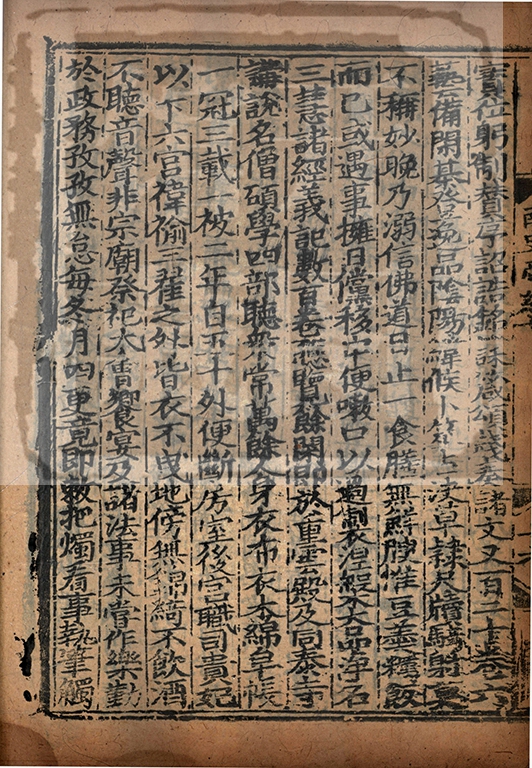 寶位躬制贊序詔誥銘誄箴頌牋奏諸文又百二十卷六
藝備閑棊登逸品陰陽緯候卜筮占决草隸尺牘騎射莫
不稱妙晚乃溺信佛道日止一食膳無鮮腴惟豆羹糲飯
而已或遇事擁日儻移中便嗽口以過制涅槃大品淨名
三慧諸經義記數百卷聽覽餘閑即於重雲殿及同泰寺
講說名僧碩學四部聽衆常萬餘人身衣布衣木綿皁帳
一冠三載一被二年自五十外便斷房室後宮職司貴妃
以下六宮褘褕三翟之外皆衣不曳地傍無錦綺不飲酒
不聽音聲非宗廟祭祀大會饗宴及諸法事未嘗作樂勤
於政務孜孜無怠每冬月四更竟即敕把燭看事執筆觸